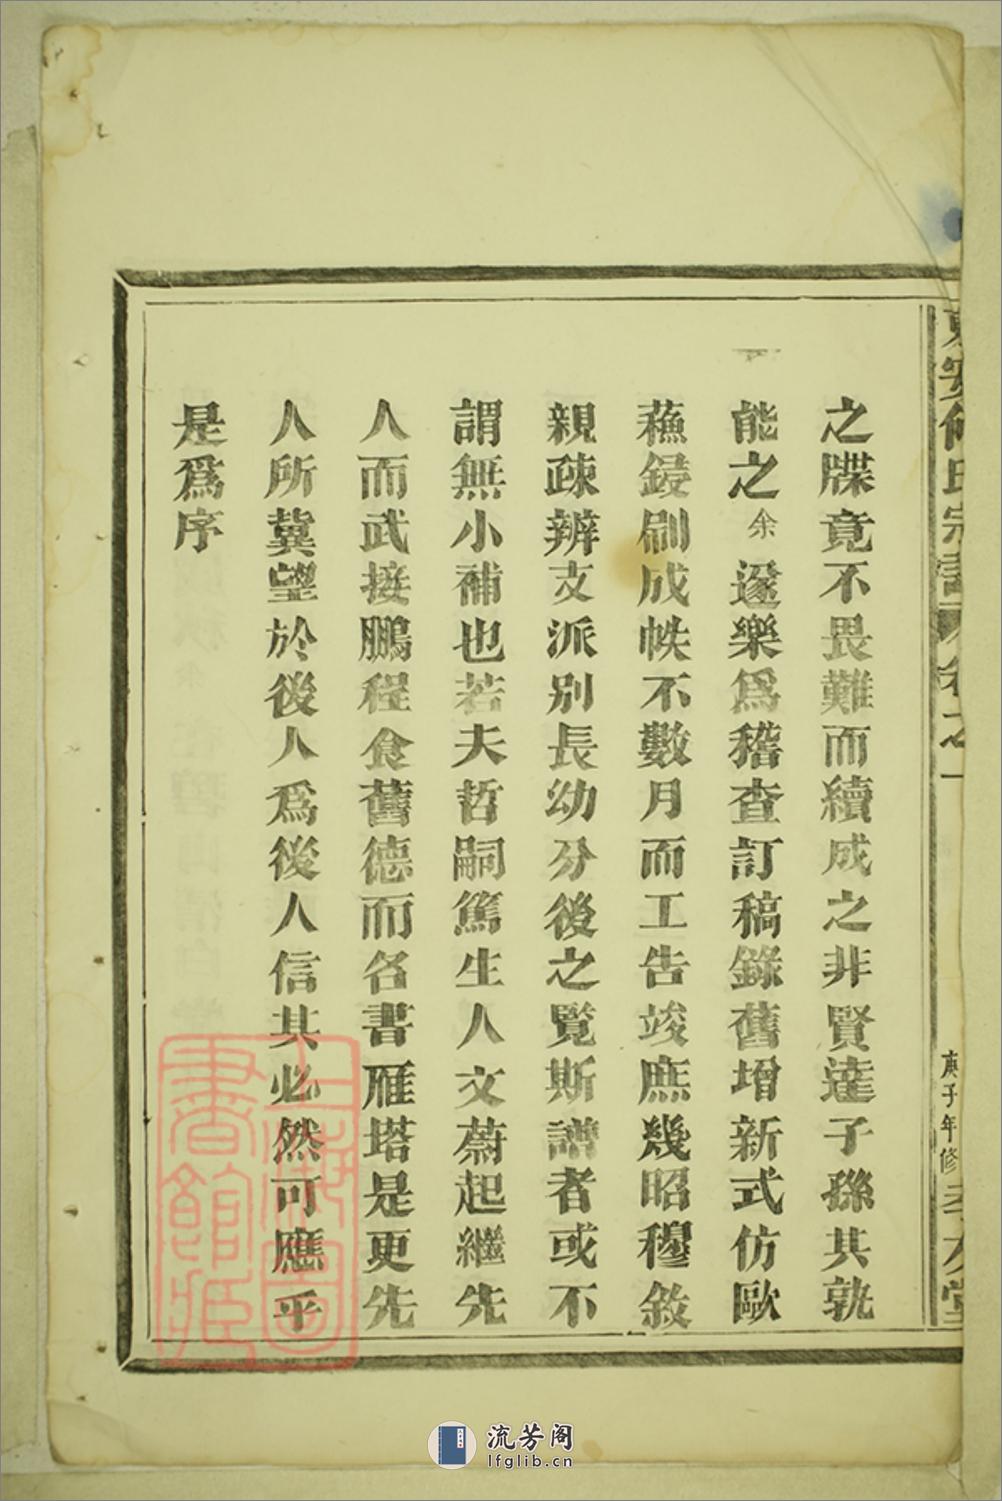 東安何氏宗譜 卷之一 庚子年修 孝友堂
之牒竟不畏難而續成之非賢達子孫其孰
能之余遂樂爲稽查訂稿錄舊增新式仿歐
蘓鋟刷成帙不數月而工告竣庶幾昭穆敘
親疎辨支派别長幼分後之覽斯譜者或不
謂無小補也若夫哲嗣篤生人文蔚起繼先
人而武接鵬程食舊德而名書雁塔是更先
人所冀望於後人爲後人信其必然可應乎
是爲序
上海圖書館藏
流芳阁
lfglib.cn